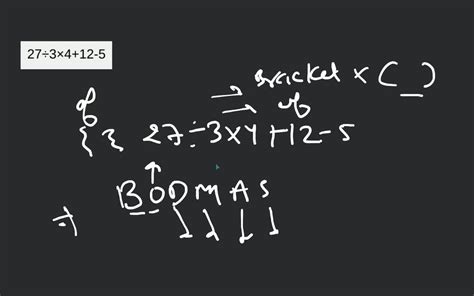 27÷3×4+12-5
→ bracket × ( _ )
of → of
{ } 27÷3×4+12-5
BODMAS
⇒